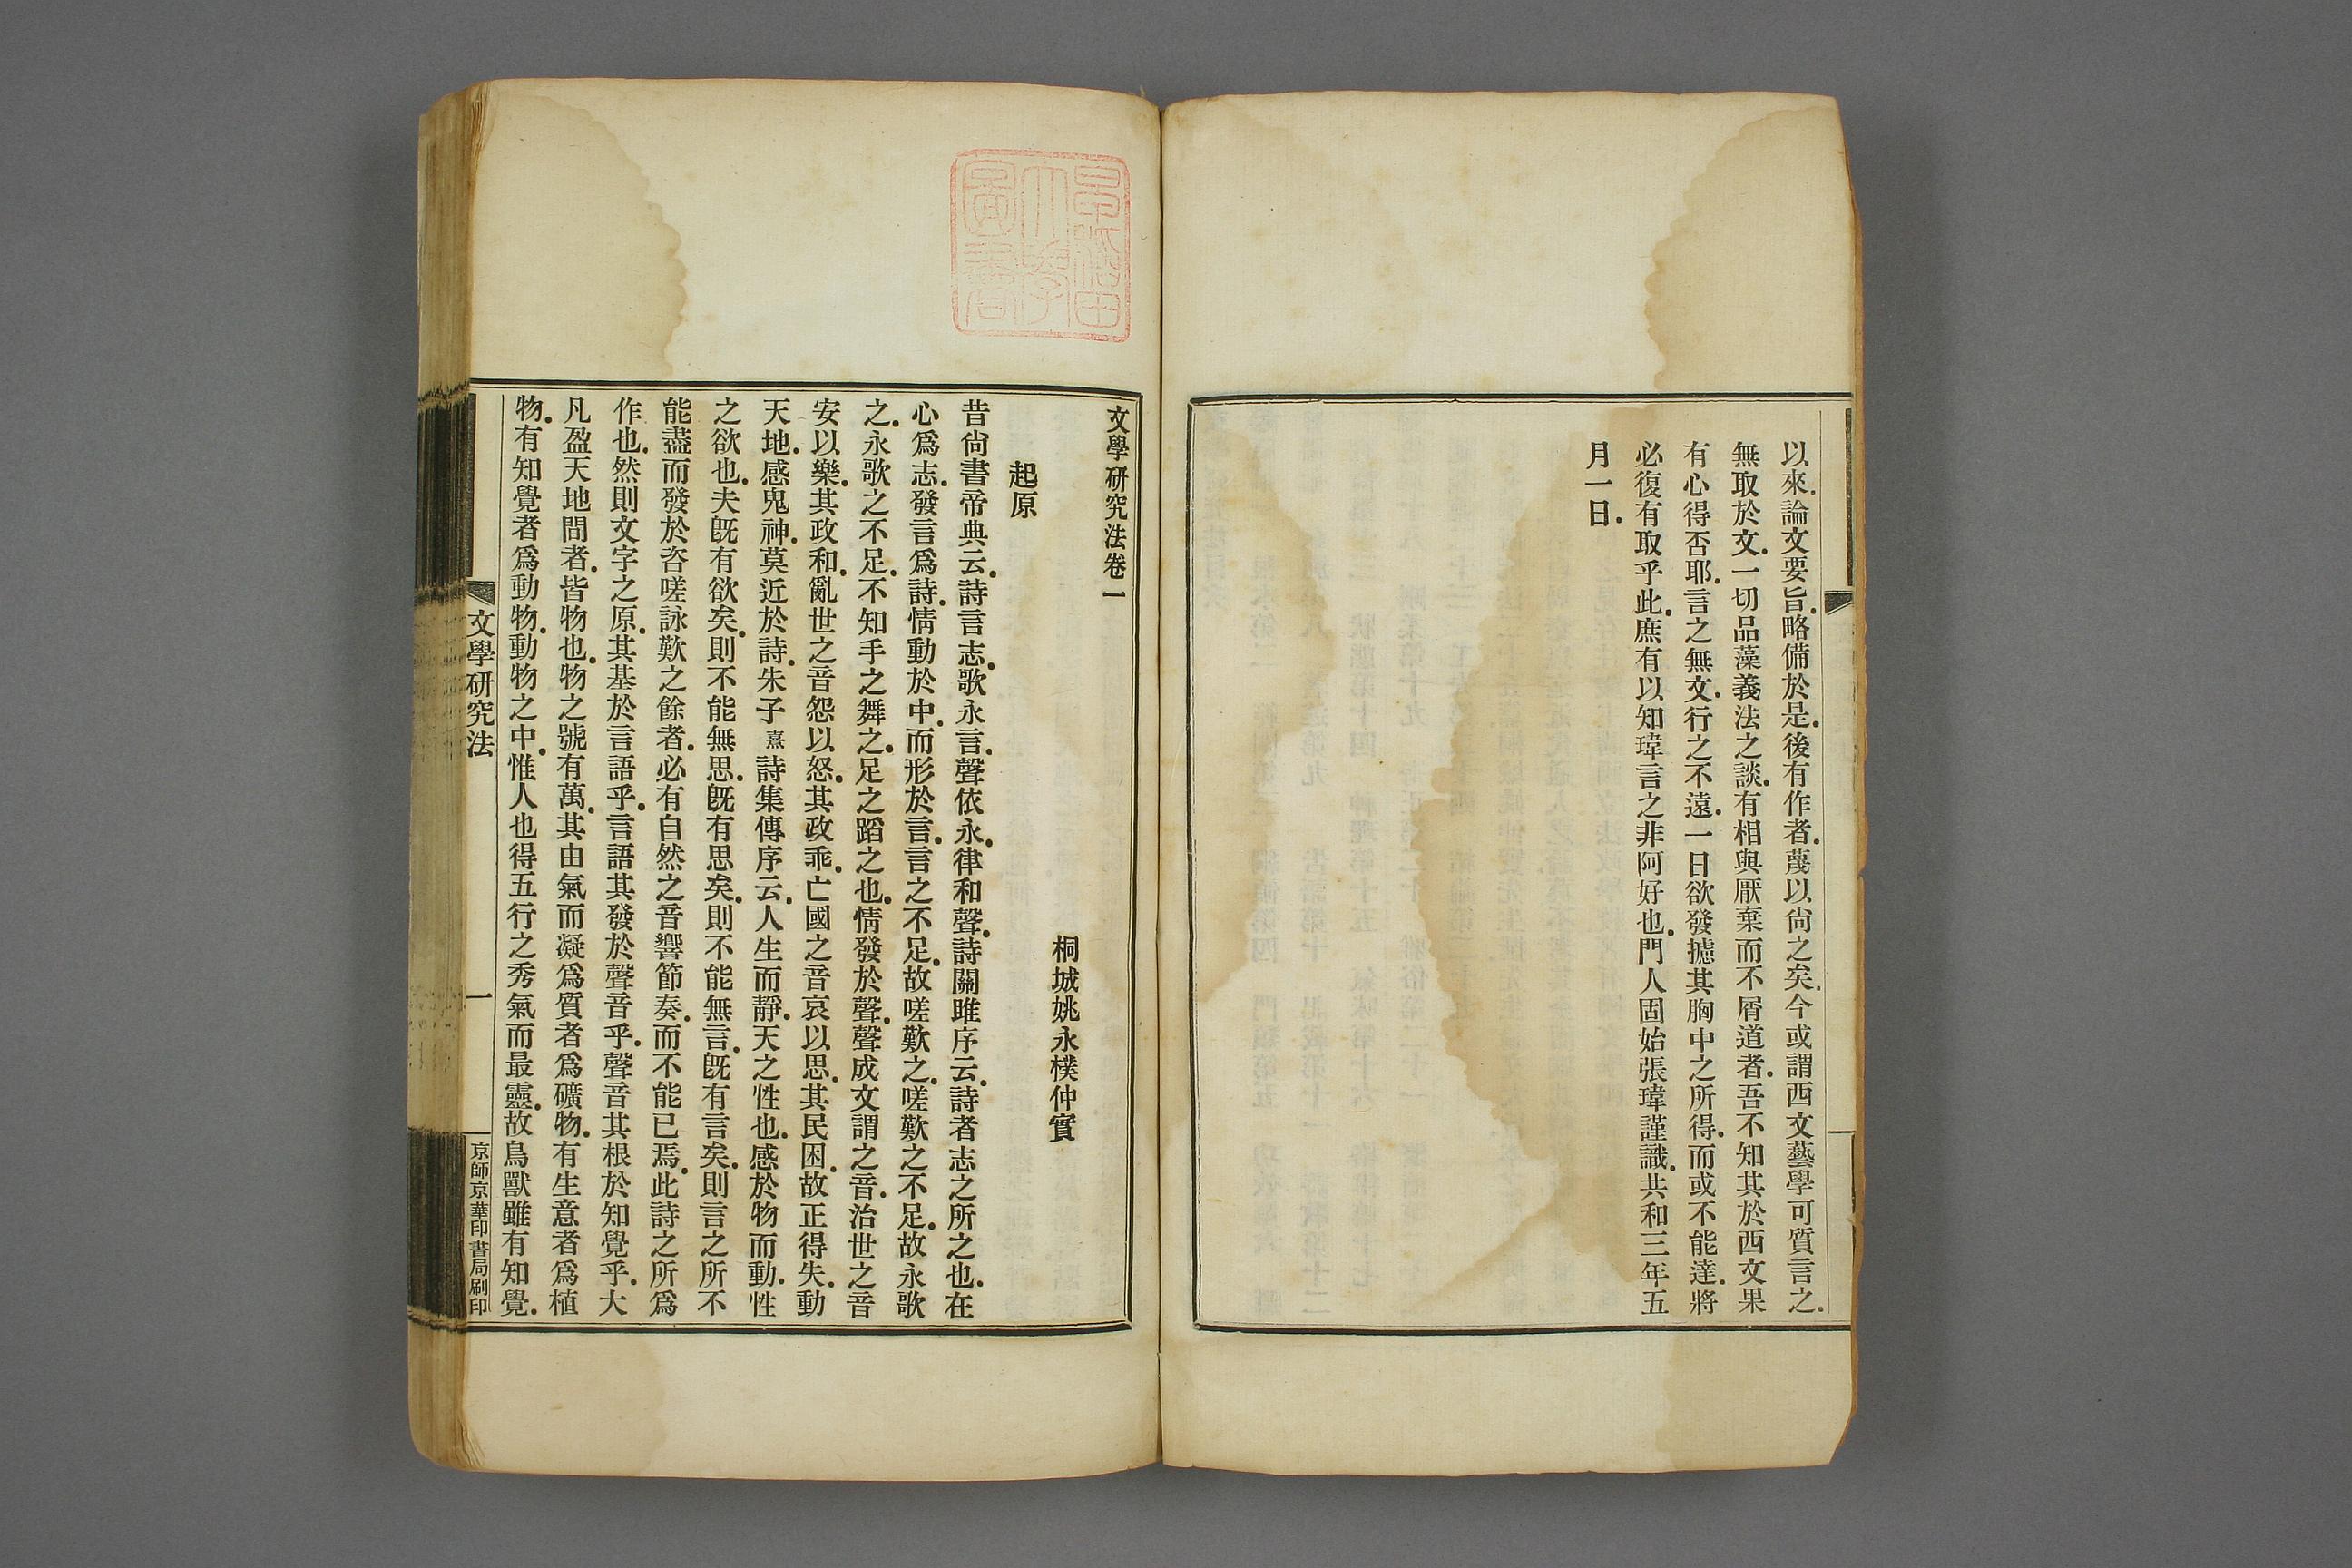 以來.論文要旨.略備於是.後有作者.蔑以尙之矣.今或謂西文藝學可質言之.
無取於文.一切品藻義法之談.有相與厭棄而不屑道者.吾不知其於西文果
有心得否耶.言之無文.行之不遠.一日欲發攄其胸中之所得.而或不能達.將
必復有取乎此.庶有以知瑋言之非阿好也.門人固始張瑋謹識.共和三年五
月一日.
文學研究法卷一
桐城姚永樸仲實
起原
昔尙書帝典云.詩言志.歌永言.聲依永.律和聲.詩關雎序云.詩者志之所之也.在
心爲志.發言爲詩.情動於中.而形於言.言之不足.故嗟歎之.嗟歎之不足.故永歌
之.永歌之不足.不知手之舞之.足之蹈之也.情發於聲.聲成文謂之音.治世之音
安以樂.其政和.亂世之音怨以怒.其政乖.亡國之音哀以思.其民困.故正得失.動
天地.感鬼神.莫近於詩.朱子熹詩集傳序云.人生而靜.天之性也.感於物而動.性
之欲也.夫旣有欲矣.則不能無思.旣有思矣.則不能無言.旣有言矣.則言之所不
能盡而發於咨嗟詠歎之餘者.必有自然之音響節奏.而不能已焉.此詩之所爲
作也.然則文字之原.其基於言語乎.言語其發於聲音乎.聲音其根於知覺乎.大
凡盈天地間者.皆物也.物之號有萬.其由氣而凝爲質者爲礦物.有生意者爲植
物.有知覺者爲動物.動物之中.惟人也得五行之秀氣而最靈.故鳥獸雖有知覺.
文學研究法
一
京師京華印書局刷印
早稻田
大學
圖書